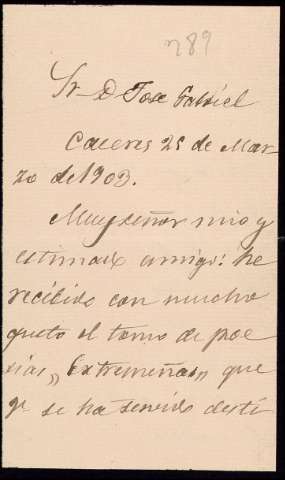 n 89
Sr. D Jose Gabriel
Caceres 25 de Mar-
zo de 1903.
Muy señor mio y
estimado amigo: he
recibido con mucho
gusto el tomo de poe
sias „Extremeñas„ que
se ha servido desti